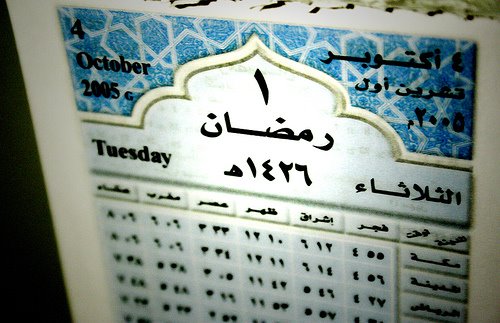 4
October
2005 G
٤ أكتوبر
تشرين أول
٢٠٠٥م
١
رمضان
١٤٢٦هـ
Tuesday
الثلاثاء
فجر إشراق ظهر عصر مغرب عشاء
مكة ٤ ٥٥ ٦ ١٢ ١٢ ١٠ ٣ ٣٣ ٦ ٠٦ ٨ ٠٦
المدينة ٤ ٥٥ ٦ ١٤ ١٢ ١١ ٣ ٣٤ ٦ ٠٦ ٨ ٠٦
الرياض ٤ ٢٧ ٥ ٤٦ ١١ ٤٢ ٣ ٠٥ ٥ ٣٨ ٧ ٣٨